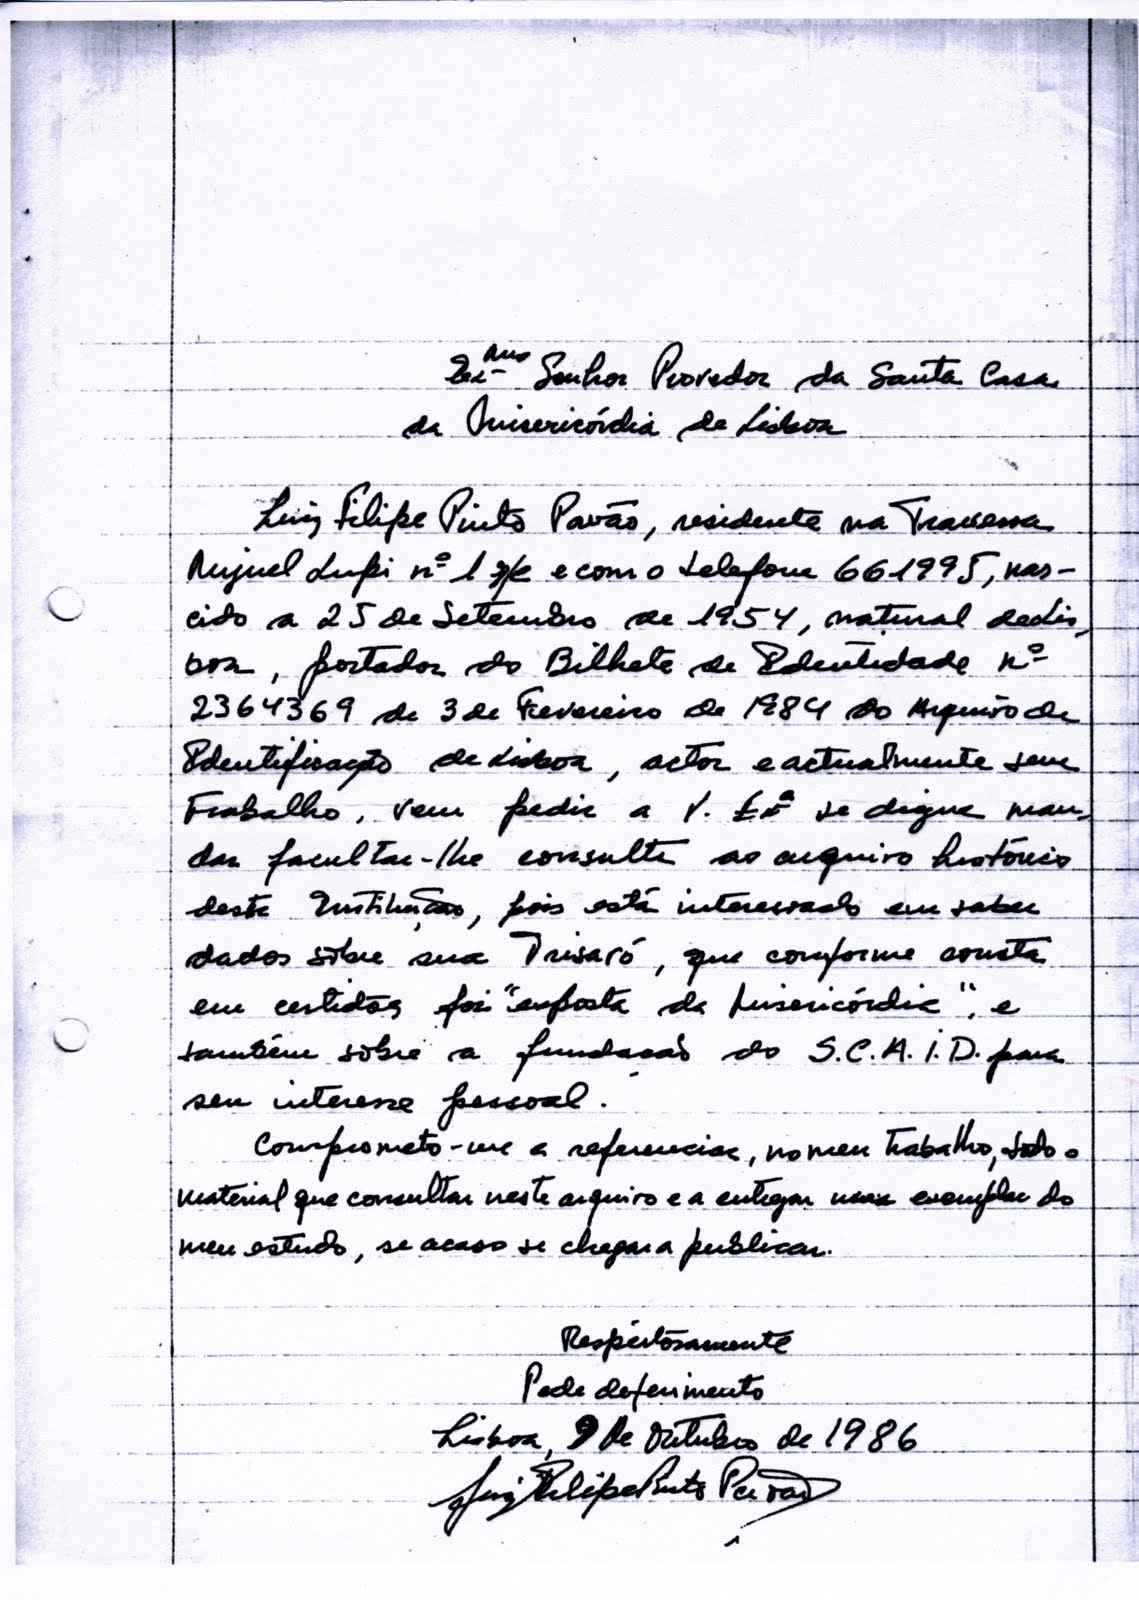 Exmo Senhor Provedor da Santa Casa
da Misericórdia de Lisboa
Luiz Filipe Pinto Pavão, residente na Travessa
Miguel Lupi nº 1 r/c e com o telefone 661995, nas-
cido a 25 de Setembro de 1954, natural de Lis-
boa, portador do Bilhete de Identidade nº
2364369 de 3 de Fevereiro de 1984 do Arquivo de
Identificação de Lisboa, actor e actualmente sem
Trabalho, vem pedir a V. Exª se digne man-
dar facultar-lhe consulta ao arquivo histórico
desta Instituição, pois está interessado em saber
dados sôbre sua Trisavó, que comforme consta
em certidão foi "exposta da Misericórdia", e
também sôbre a fundação do S.C.A.I.D. para
seu interesse pessoal.
Comprometo-me a referenciar, no meu trabalho, todo o
material que consultar neste arquivo e a entregar um exemplar do
meu estudo, se acaso se chegar a publicar.
Respeitosamente
Pede deferimento
Lisboa, 9 de Outubro de 1986
Luiz Filipe Pinto Pavão